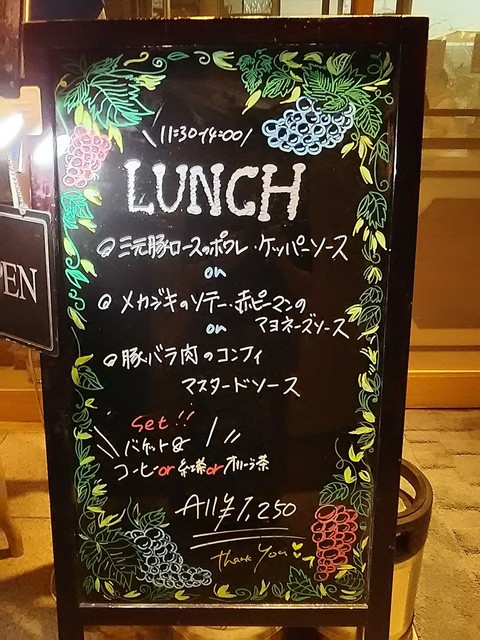 11:30-14:00
LUNCH
三元豚ロースのポワレ・ケッパーソース
or
メカジキのソテー・赤ピーマンの
or マヨネーズソース
豚バラ肉のコンフィ
マスタードソース
Set!!
バケット&
コーヒーor紅茶orオリーブ茶
All ¥1,250
Thank You
PEN